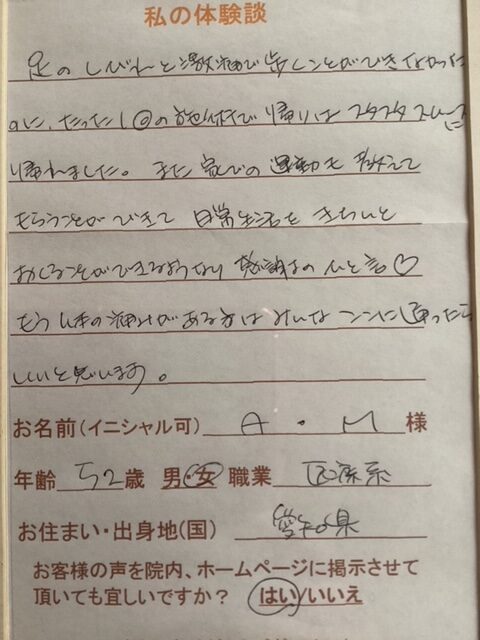 私の体験談
足のしびれと激痛で歩くことができなかった
のに、たった1回の施術で帰りはスタスタスムーズに
帰れました。また家での運動も教えて
もらうことができて日常生活をきちんと
おくることができるようになり感謝の一言♡
もし体の痛みがある方はみんなここに通ったら
いいと思います。
お名前(イニシャル可) A・M 様
年齢 52歳 男・女 職業 医療系
お住まい・出身地(国) 愛知県
お客様の声を院内、ホームページに掲示させて
頂いても宜しいですか? はい/いいえ